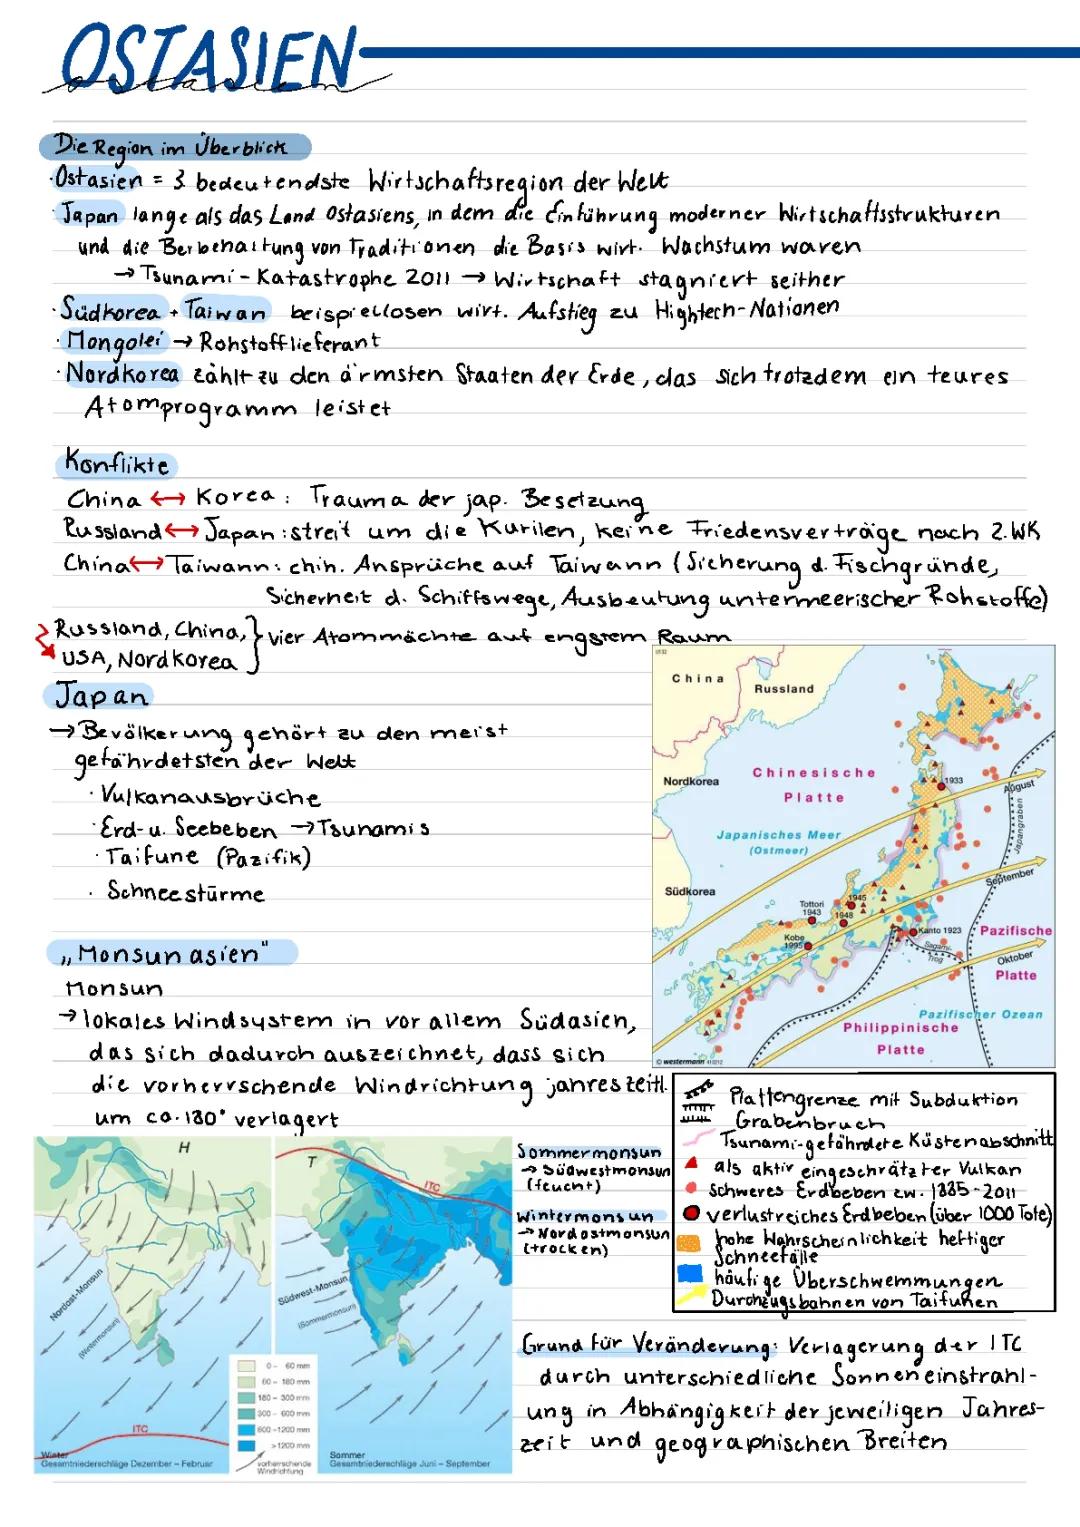 OSTASIEN
ostasien
Die Region im Überblick
· Ostasien = 3. bedeutendste Wirtschaftsregion der Welt
· Japan lange als das Land Ostasiens, in dem die Einführung moderner Wirtschaftsstrukturen
und die Beibehaltung von Traditionen die Basis wirt. Wachstum waren
→ Tsunami-Katastrophe 2011 → Wirtschaft stagniert seither
· Südkorea + Taiwan beispiellosen wirt. Aufstieg zu Hightech-Nationen
· Mongolei → Rohstofflieferant
· Nordkorea zählt zu den ärmsten Staaten der Erde, das sich trotzdem ein teures
Atomprogramm leistet
Konflikte
China ↔ Korea: Trauma der jap. Besetzung
Russland ↔ Japan: streit um die Kurilen, keine Friedensverträge nach 2.WK
China ↔ Taiwann: chin. Ansprüche auf Taiwann (Sicherung d. Fischgründe,
Sicherheit d. Schiffswege, Ausbeutung untermeerischer Rohstoffe)
Russland, China, } vier Atommächte auf engstem Raum
USA, Nordkorea
Japan
→ Bevölkerung gehört zu den meist
gefährdetsten der Welt
· Vulkanausbrüche
· Erd- u. Seebeben → Tsunamis
· Taifune (Pazifik)
· Schneestürme
China
Russland
Nordkorea
Chinesische
Platte
1933
August
Japangraben
Japanisches Meer
(Ostmeer)
Südkorea
September
Tottori
1943
1945
1948
Kobe
1995
Kanto 1923
Sagami-
Trog
Pazifische
Oktober
Platte
Pazifischer Ozean
Philippinische
Platte
© westermann
„Monsunasien"
Monsun
→ lokales Windsystem in vor allem Südasien,
das sich dadurch auszeichnet, dass sich
die vorherrschende Windrichtung jahreszeitl.
um ca. 180° verlagert
Plattengrenze mit Subduktion
Grabenbruch
Tsunami-gefährdete Küstenabschnitt
als aktiv eingeschrätzter Vulkan
schweres Erdbeben zw. 1885-2011
verlustreiches Erdbeben (über 1000 Tote)
hohe Wahrscheinlichkeit heftiger
Schneefälle
häufige Überschwemmungen
Durchzugsbahnen von Taifunen
H
Nordost-Monsun
(Wintermonsun)
ITC
Winter
Gesamtniederschläge Dezember – Februar
0 - 60 mm
60 - 180 mm
180 - 300 mm
300 - 600 mm
600 - 1200 mm
> 1200 mm
vorherrschende
Windrichtung
T
ITC
Südwest-Monsun
(Sommermonsun)
Sommer
Gesamtniederschläge Juni – September
Sommermonsun
→ Südwestmonsun
(feucht)
Wintermonsun
→ Nordostmonsun
(trocken)
Grund für Veränderung: Verlagerung der ITC
durch unterschiedliche Sonneneinstrahl-
ung in Abhängigkeit der jeweiligen Jahres-
zeit und geographischen Breiten